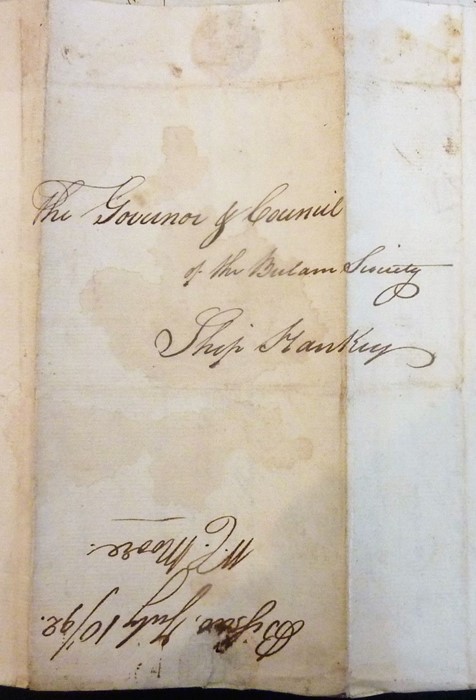 The Governor & Council
of the Bulam Society
Ship Hankey
Bissao, July 10/92.
W. C. Moore.